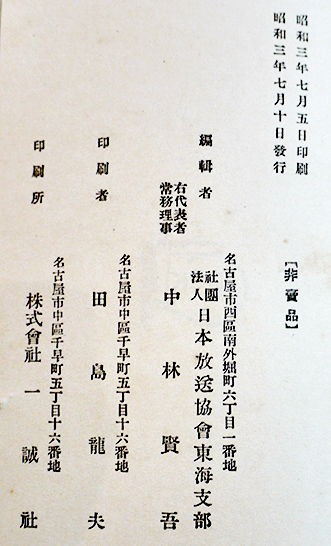 昭和三年七月五日印刷
昭和三年七月十日發行
【非賣品】
名古屋市西區南外堀町六丁目一番地
編輯者
社團法人日本放送協會東海支部
右代表者常務理事
中林賢吾
名古屋市中區千早町五丁目十六番地
印刷者
田島龍夫
名古屋市中區千早町五丁目十六番地
印刷所
株式會社一誠社